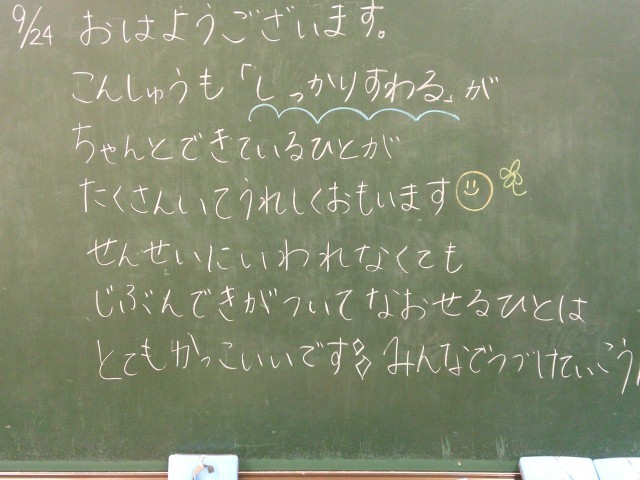 9/24 おはようございます。
こんしゅうも「しっかりすわる」が
ちゃんとできているひとが
たくさんいてうれしくおもいます
せんせいにいわれなくても
じぶんできがついてなおせるひとは
とてもかっこいいです みんなでつづけていこう